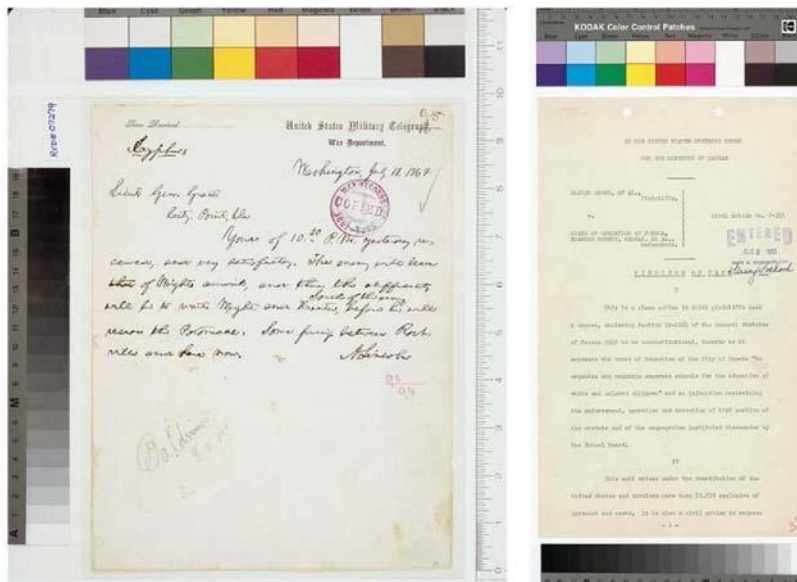 Blue Cyan Green Yellow Red Magenta White Brown Black
Time Received
95
United States Military Telegraph,
War Department.
Cypher
Washington, July 11. 1864
Lieut Gen. Grant
City Point, Va
Yours of 10.30 P.M. yesterday re-
ceived, and very satisfactory. The enemy will learn
of Wright's arrival, and then the difficulty
will be to unite Wright and Hunter, South of the enemy before he will
recross the Potomac. Some firing between Rock
ville and here now.
A. Lincoln
94
Baldwin
KODAK Color Control Patches
Blue Cyan Green Yellow Red Magenta White
IN THE UNITED STATES DISTRICT COURT
FOR THE DISTRICT OF KANSAS
OLIVER BROWN, ET AL.,
Plaintiffs,
v.
Civil Action No. T-316
BOARD OF EDUCATION OF TOPEKA,
SHAWNEE COUNTY, KANSAS, ET AL.,
Defendants.
ENTERED
FINDINGS OF FACT
I
This is a class action in which plaintiffs seek
a decree, declaring Section 72-1724 of the General Statutes
of Kansas 1949 to be unconstitutional, insofar as it
empowers the board of education of the City of Topeka "to
organize and maintain separate schools for the education of
white and colored children" and an injunction restraining
the enforcement, operation and execution of that portion of
the statute and of the segregation instituted thereunder by
the School Board.
II
This suit arises under the Constitution of the
United States and involves more than $3,000 exclusive of
interest and costs. It is also a civil action to redress
- 1 -